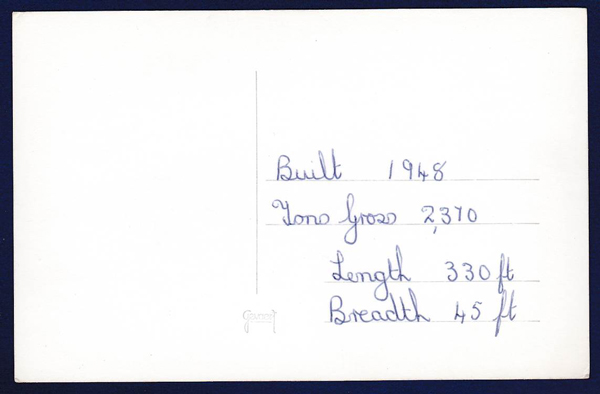 Built 1948
Tons Gross 2,370
Length 330 ft
Breadth 45 ft